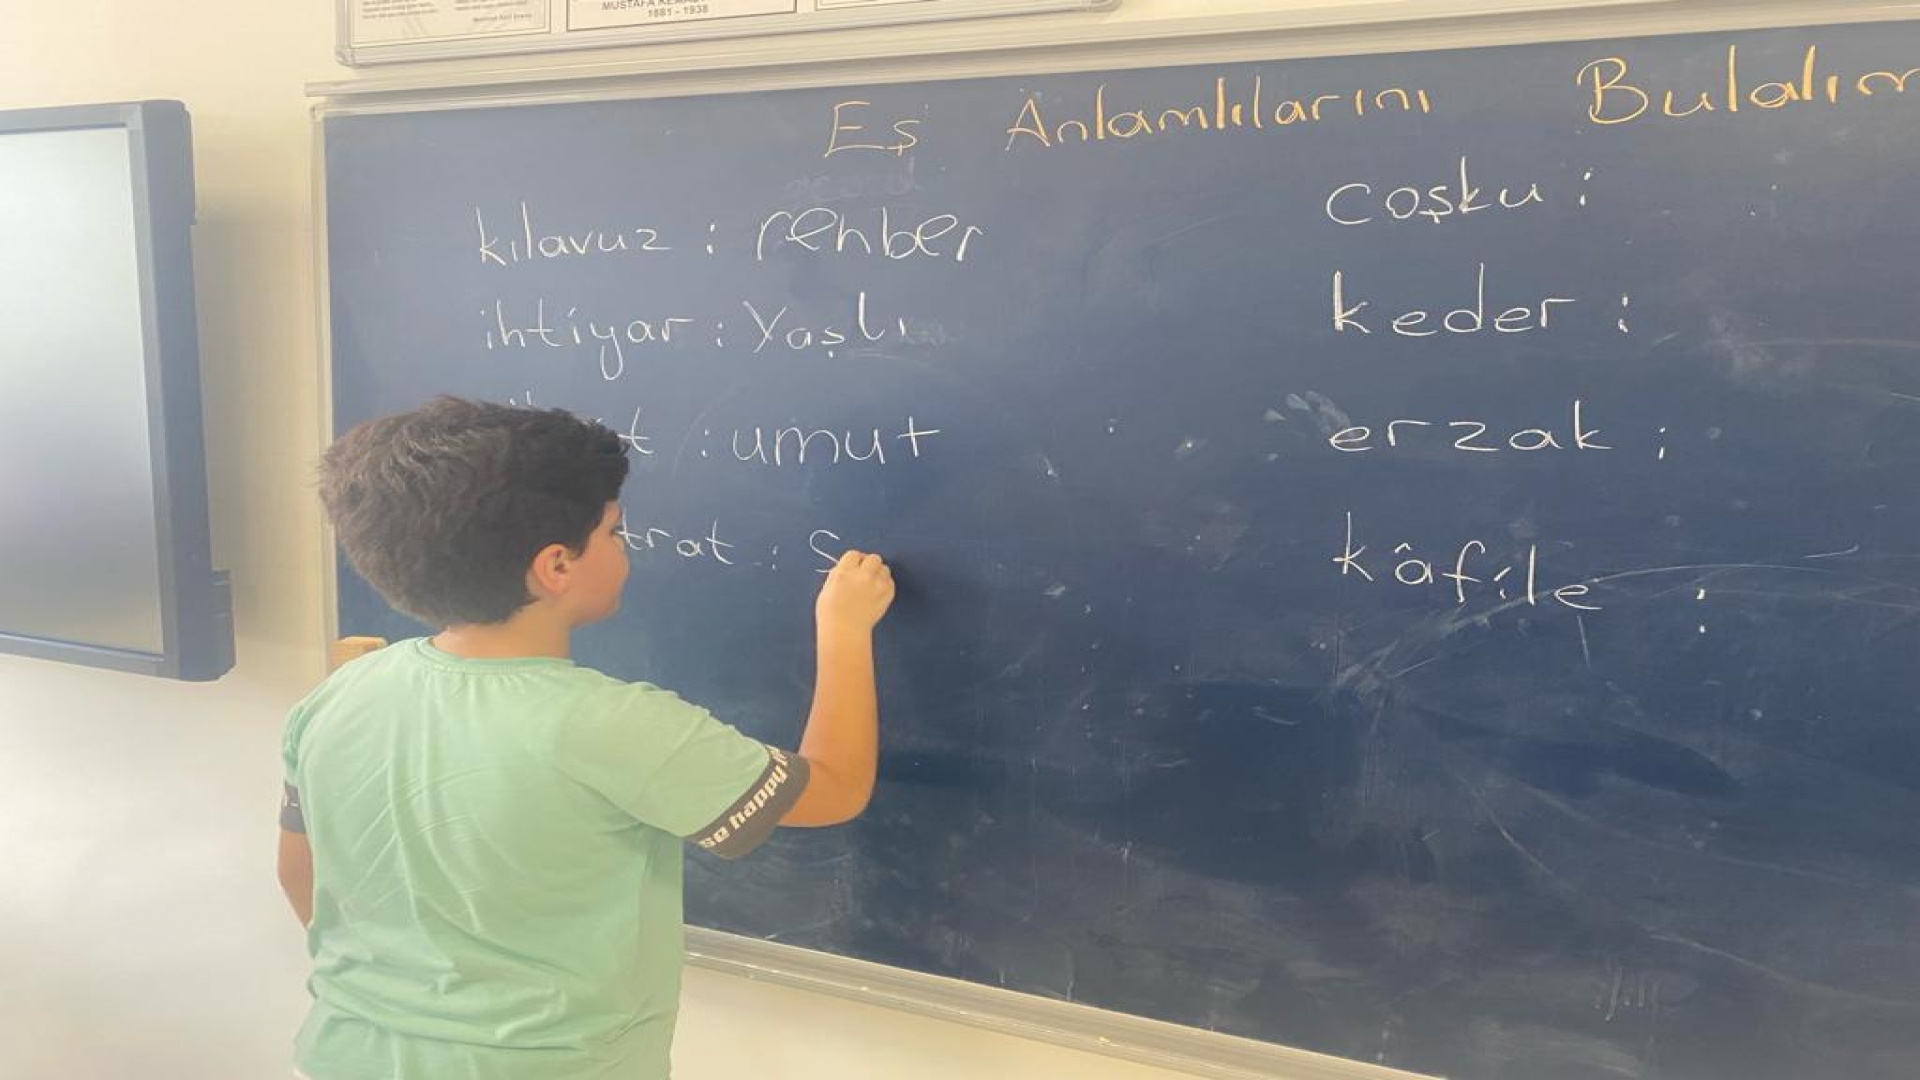 MUSTAFA KEMAL
1881 - 1938
Eş Anlamlılarını Bulalım
kılavuz : rehber
ihtiyar : Yaşlı
t : umut
trat : S
coşku :
keder :
erzak :
kâfile :
se happy